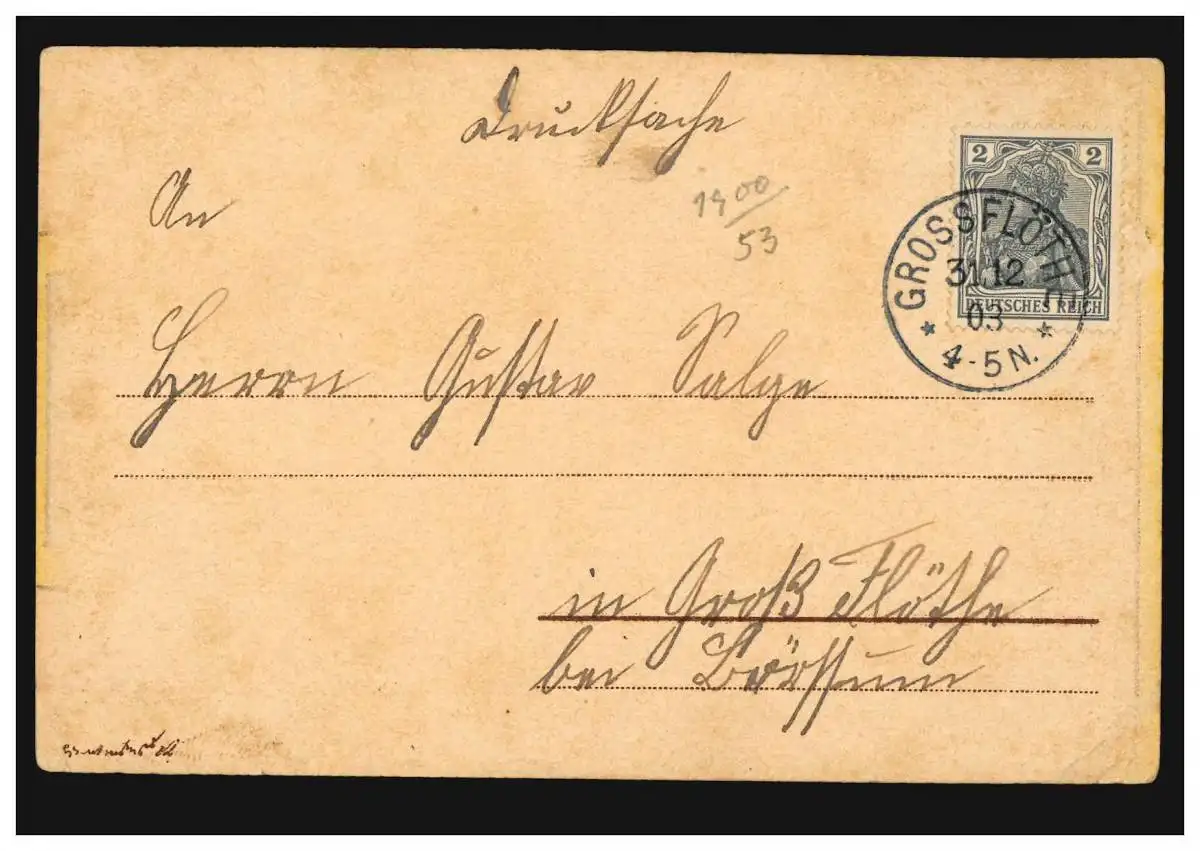 Drucksache
An
1900
53
2 2
DEUTSCHES REICH
GROSSFLÖTHE
31.12
03
* 4-5N. *
Herrn Gustav Salge
in Groß Flöthe
bei Börssum